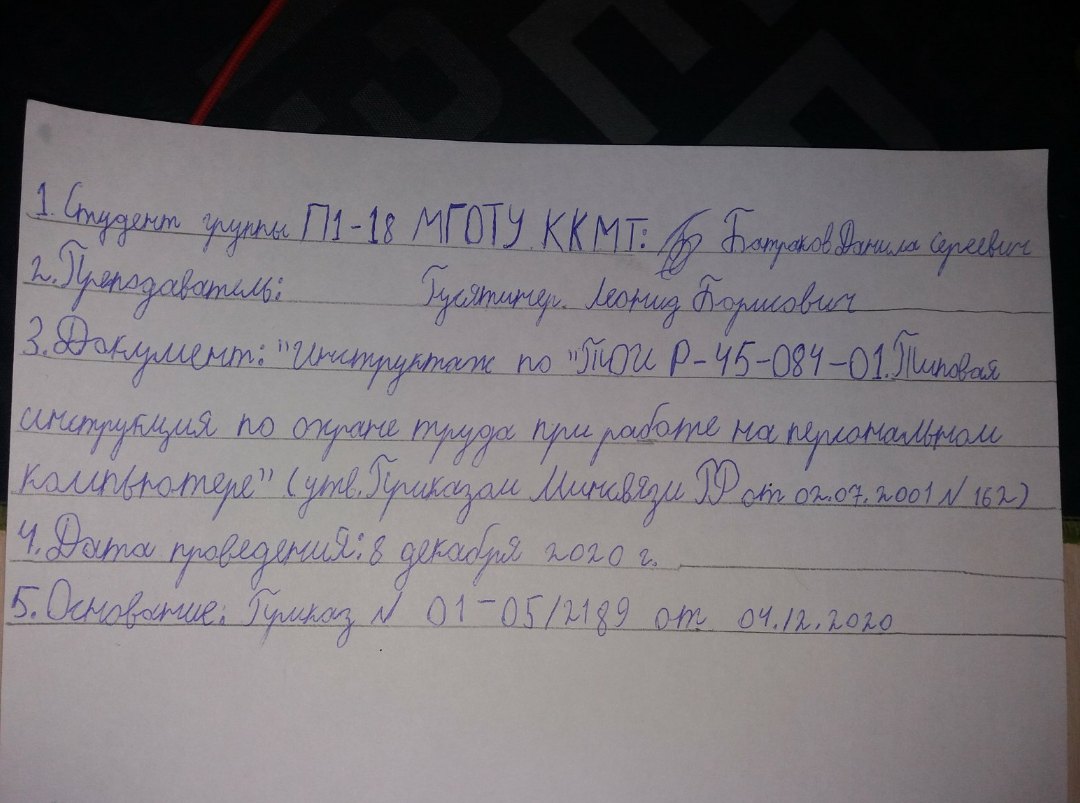 1. Студент группы П1-18 МГОТУ ККМТ: Батраков Данила Сергеевич
2. Преподаватель: Гусятинер. Леонид Борисович
3. Документ: "Инструктаж по "ТОИ Р-45-084-01. Типовая
инструкция по охране труда при работе на персональном
компьютере" (утв. Приказом Минсвязи РФ от 02.07.2001 N 162)
4. Дата проведения: 8 декабря 2020 г.
5. Основание: Приказ N 01-05/2189 от 04.12.2020